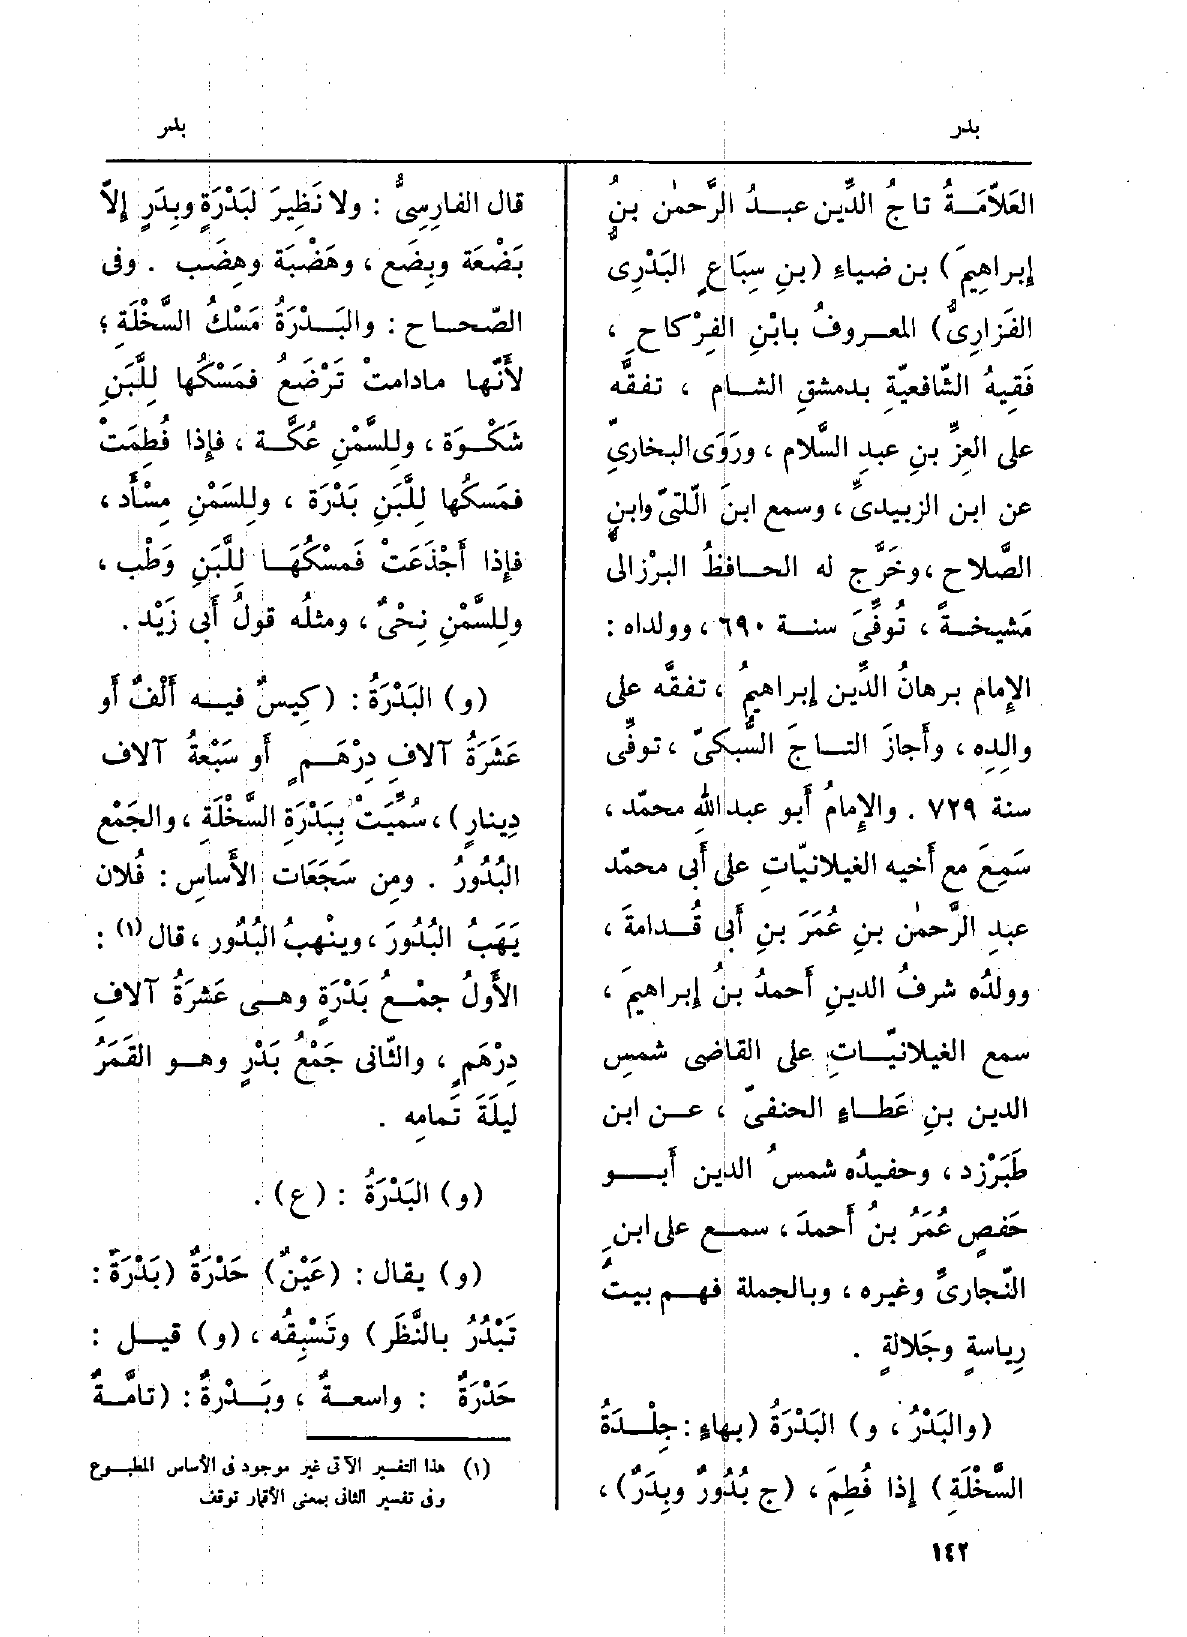 بدر
بدر
العَلاّمَةُ تاجُ الدِّين عبدُ الرَّحمٰن بنُ
إبراهِيمَ) بن ضياء (بنِ سِبَاعٍ البَدْرِى
الفَزارِىُّ) المعروفُ بابْنِ الفِرْكاحِ ،
فَقِيهُ الشّافعيّةِ بدمشقِ الشامِ ، تفقَّه
على العِزِّ بنِ عبدِ السّلام ، ورَوَى البخاريّ
عن ابن الزبيدىّ ، وسمع ابنَ اللّتىّ وابنَ
الصَّلاح ،وخَرَّج له الحافظُ البِرْزالى
مَشيخةً ، تُوفِّىَ سنة ٦٩٠ ، وولداه :
الإمام برهانُ الدِّين إبراهيمُ ، تفقَّه على
والِدِه ، وأجازَ التاجَ السُّبكىّ ، توفِّى
سنة ٧٢٩ . والإمامُ أبو عبدالله محمّد ،
سَمِعَ مع أخيه الغيلانيّاتِ على أبى محمّد
عبدِ الرَّحمٰن بنِ عُمَرَ بنِ أبى قُدامةَ ،
وولدُه شرفُ الدينِ أحمدُ بنُ إبراهيمَ ،
سمع الغيلانيّاتِ على القاضى شمسِ
الدين بنِ عَطاءٍ الحنفىّ ، عن ابن
طَبَرْزد ، وحفيدُه شمسُ الدين أبو
حَفصٍ عُمَرُ بنُ أحمدَ ، سمع على ابنِ
النّجارىِّ وغيره ، وبالجملة فهم بيت
رِياسةٍ وجَلالةٍ .
(والبَدْرُ ، و) البَدْرَةُ (بهاءٍ : جِلْدَةُ
السَّخْلَةِ) إذا فُطِمَ ، (ج بُدُورٌ وبِدَرٌ) ،
قال الفارِسِىُّ : ولا نَظِيرَ لبَدْرَةٍ وبِدَرٍ إلاّ
بَضْعَة وبِضَع ، وهَضْبَة وهِضَب . وفى
الصّحاح : والبَدْرَةُ مَسْكُ السَّخْلَةِ ؛
لأَنّها مادامتْ تَرْضَعُ فمَسْكُها لِلَّبَنِ
شَكْوَة ، ولِلسَّمْنِ عُكَّة ، فإذا فُطِمَتْ
فمَسكُها لِلَّبَنِ بَدْرَة ، ولِلسَمْنِ مِسْأَد ،
فإذا أَجْذَعَتْ فَمسْكُهَا لِلَّبَنِ وَطْب ،
ولِلسَّمْنِ نِحْىٌ ، ومثلُه قولُ أبى زَيْد .
(و) البَدْرَةُ : (كِيسٌ فيه أَلْفٌ أو
عَشَرَةُ آلافِ دِرْهَمٍ أو سَبْعةُ آلاف
دِينارٍ) ، سُمِّيَتْ بِبَدْرَةِ السَّخْلَةِ ، والجَمْع
البُدُورُ . ومِن سَجَعَات الأَساس : فُلان
يَهَبُ البُدُورَ ، وينْهبُ البُدُور ، قال (١) :
الأَولُ جمْعُ بَدْرَةٍ وهى عَشرَةُ آلافِ
دِرْهَمٍ ، والثّانى جَمْعُ بَدْرٍ وهو القَمَرُ
ليلَةَ تَمامِه .
(و) البَدْرَةُ : (ع) .
(و) يقال : (عَيْنٌ) حَدْرَةٌ (بَدْرَةٌ :
تَبْدُرُ بالنَّظَر) وتَسْبِقُه ، (و) قيل :
حَدْرَةٌ : واسعةٌ ، وبَدْرةٌ : (تامَّةٌ
(١) هذا التفسير الآتى غير موجود فى الأساس المطبوع
وفى تفسير الثانى بمعنى الأقمار توقف
١٤٢